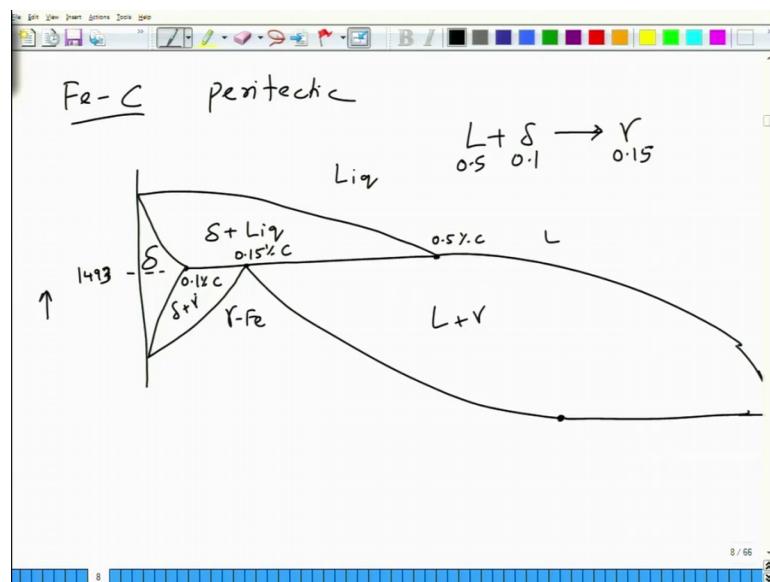 File Edit View Insert Actions Tools Help
B I
Fe-C peritectic
L + δ → γ
0.5 0.1 0.15
Liq
δ + Liq
0.5% C
L
0.15% C
δ
1493
0.1% C
δ+γ
γ-Fe
L+γ
8 / 66
8